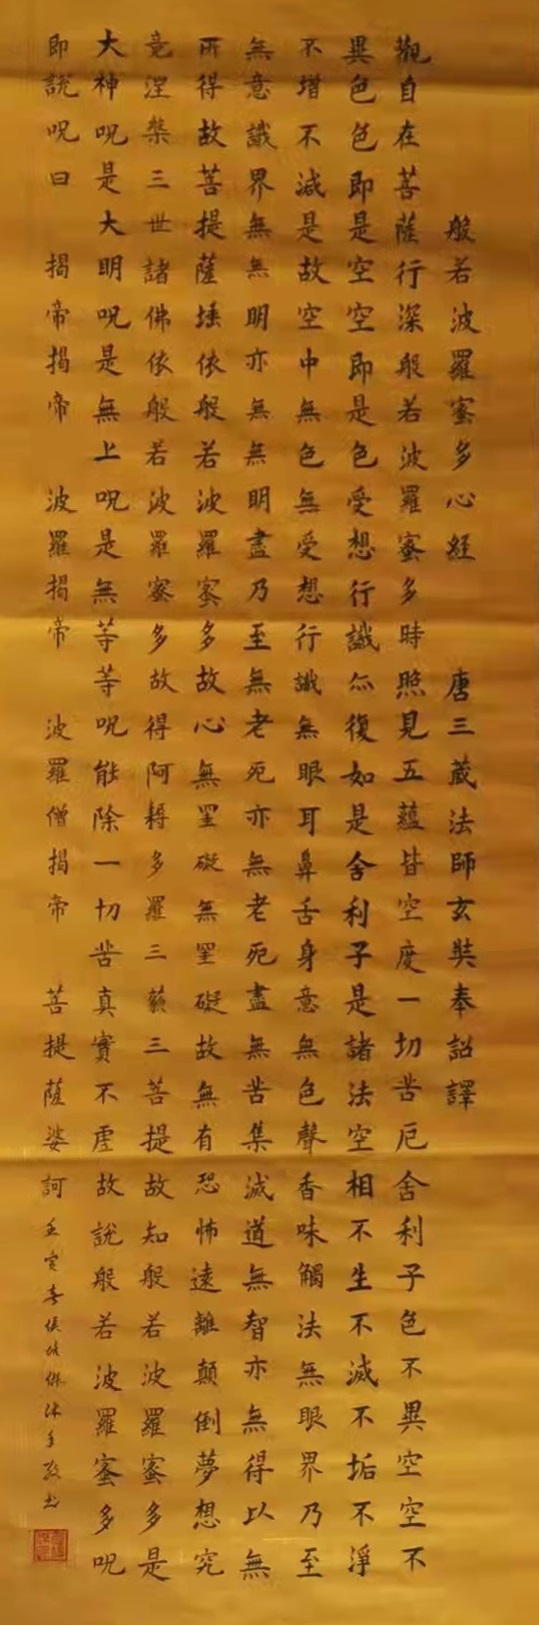 般若波羅蜜多心經 唐三藏法師玄奘奉詔譯
觀自在菩薩行深般若波羅蜜多時照見五蘊皆空度一切苦厄舍利子色不異空空不
異色色即是空空即是色受想行識亦復如是舍利子是諸法空相不生不滅不垢不淨
不增不減是故空中無色無受想行識無眼耳鼻舌身意無色聲香味觸法無眼界乃至
無意識界無無明亦無無明盡乃至無老死亦無老死盡無苦集滅道無智亦無得以無
所得故菩提薩埵依般若波羅蜜多故心無罣礙無罣礙故無有恐怖遠離顛倒夢想究
竟涅槃三世諸佛依般若波羅蜜多故得阿耨多羅三藐三菩提故知般若波羅蜜多是
大神呪是大明呪是無上呪是無等等呪能除一切苦真實不虛故說般若波羅蜜多呪
即說呪曰 揭帝揭帝 波羅揭帝 波羅僧揭帝 菩提薩婆訶 壬寅春侯 沐手敬书